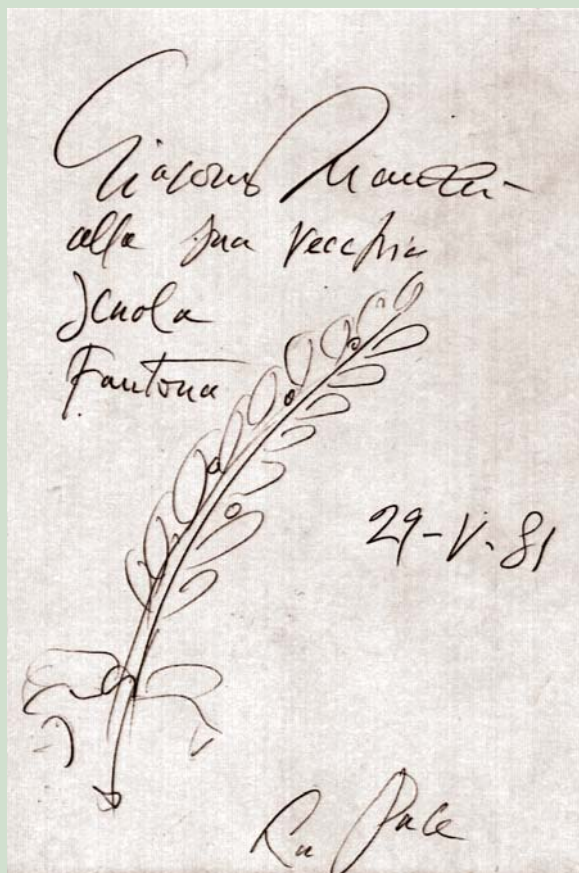 Giacomo Manzù
alla sua vecchia
Scuola
Fantona
29-V-81
La Pace